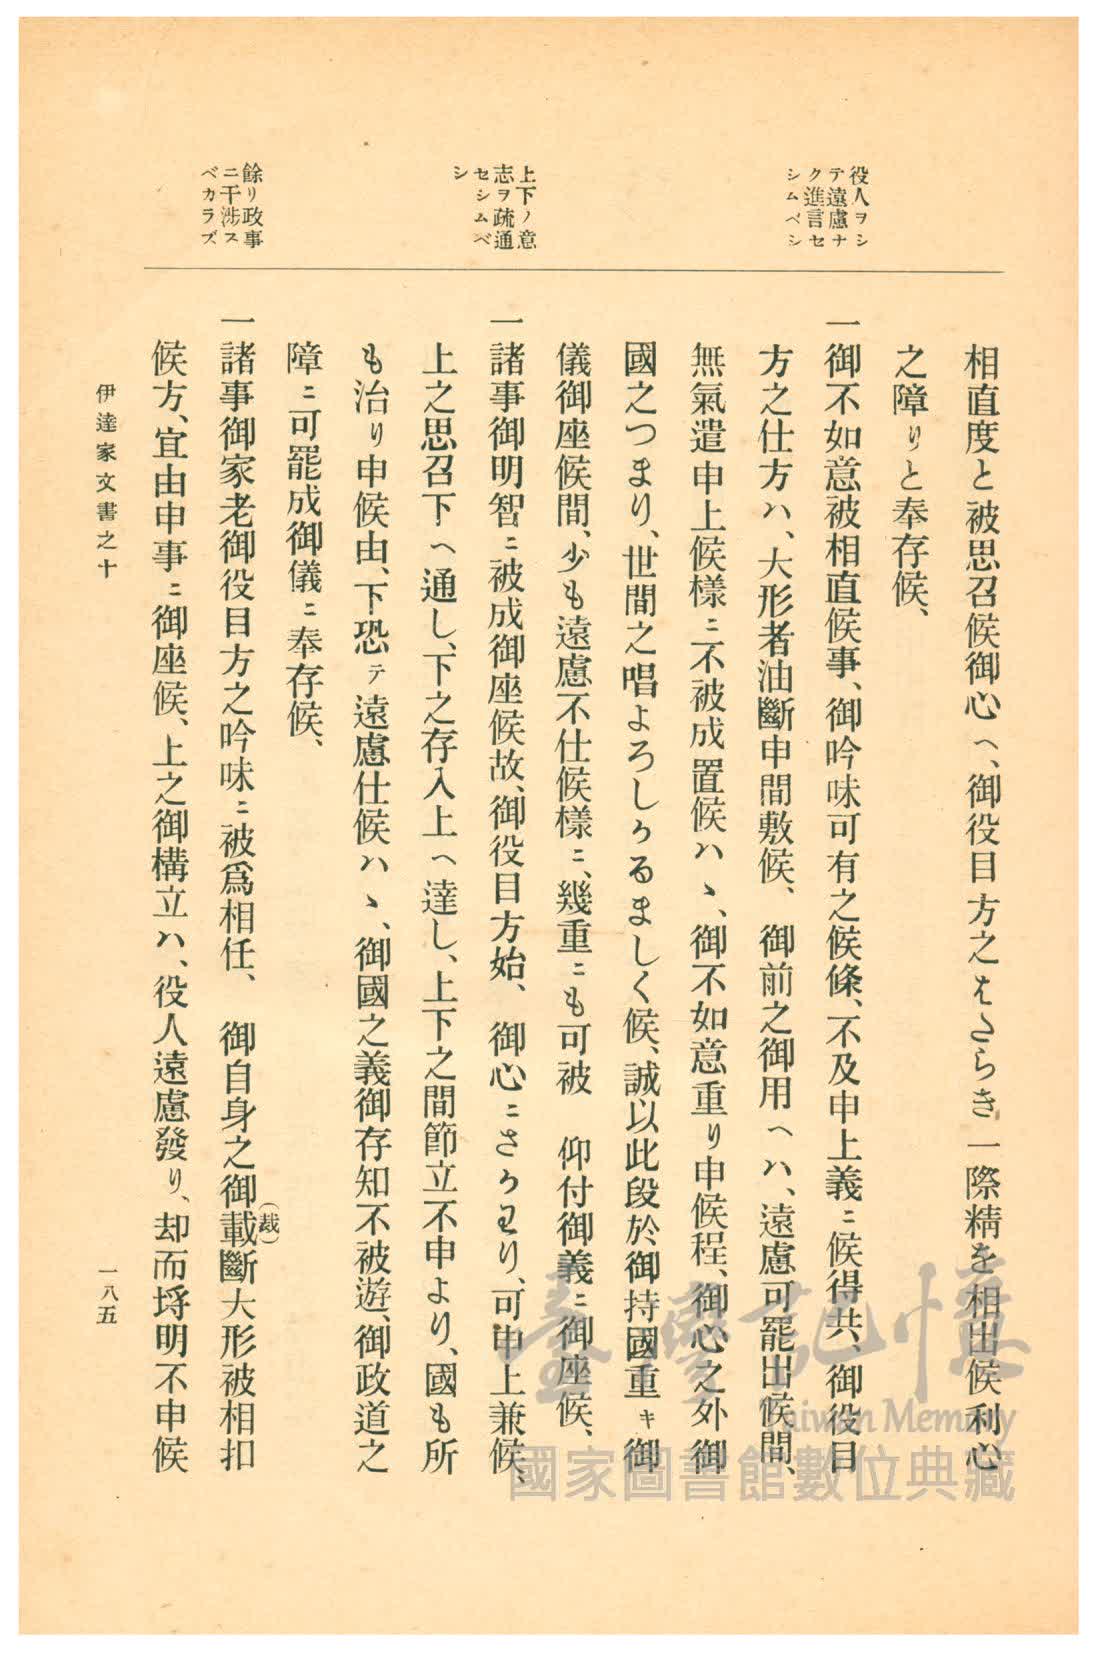 役人ヲシ
テ遠慮ナ
ク進言セ
シムベシ
上下ノ意
志ヲ疏通
セシムベ
シ
餘リ政事
ニ干渉ス
ベカラズ
相直度と被思召候御心ヘ、御役目方之はたらき一際精を相出候利心
之障りと奉存候、
一御不如意被相直候事、御吟味可有之候條、不及申上義ニ候得共、御役目
方之仕方ハ、大形者油斷申間敷候、　御前之御用ヘハ、遠慮可罷出候間、
無氣遣申上候樣ニ不被成置候ハヽ、御不如意重リ申候程、御心之外御
國之つまり、世間之唱よろしかるましく候、誠以此段於御持國重キ御
儀御座候間、少も遠慮不仕候樣ニ、幾重ニも可被　仰付御義ニ御座候、
一諸事御明智ニ被成御座候故、御役目方始、　御心ニさかわり、可申上兼候、
上之思召下ヘ通し、下之存入上ヘ達し、上下之間節立不申より、國も所
も治り申候由、下恐テ遠慮仕候ハヽ、御國之義御存知不被遊、御政道之
障ニ可罷成御儀ニ奉存候、
一諸事御家老御役目方之吟味ニ被爲相任、　御自身之御載斷大形被相扣
（裁）
候方、宜由申事ニ御座候、上之御構立ハ、役人遠慮發り、却而埒明不申候
伊達家文書之十
一八五
臺灣記憶
Taiwan Memory
國家圖書館數位典藏